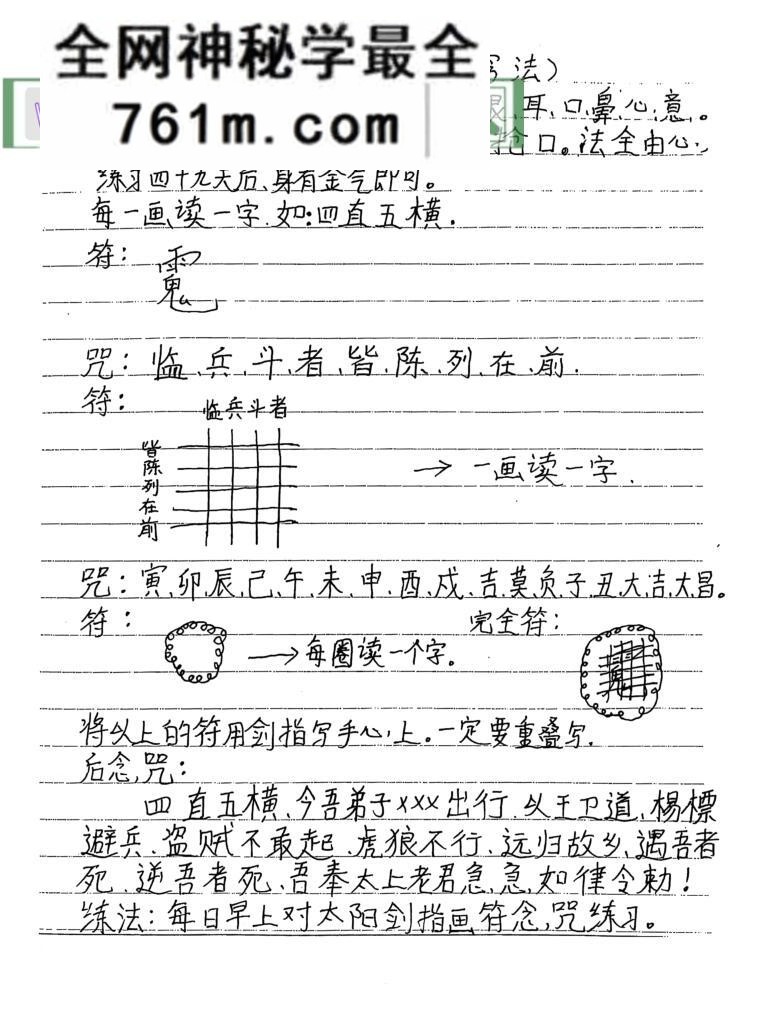 全网神秘学最全
761m.com
法）
耳、口、鼻、心、意。
口。法全由心
练习四十九天后、身有金气即可。
每一画读一字.如:四直五横.
符：
咒：临、兵、斗、者、皆、陈、列、在、前.
符：
临兵斗者
皆
陈
列
在
前
→ 一画读一字.
咒：寅、卯、辰、己、午、未、申、酉、戍、吉、莫、负、子、丑、大、吉、大、昌。
符： 完全符：
→每圈读一个字。
将以上的符用剑指写手心上。一定要重叠写.
后念咒：
四直五横、今吾弟子xxx出行.以王卫道,杨標
避兵、盗贼不敢起、虎狼不行、远归故乡、遇吾者
死、逆吾者死、吾奉太上老君急急如律令勅！
练法：每日早上对太阳剑指画符念咒练习。